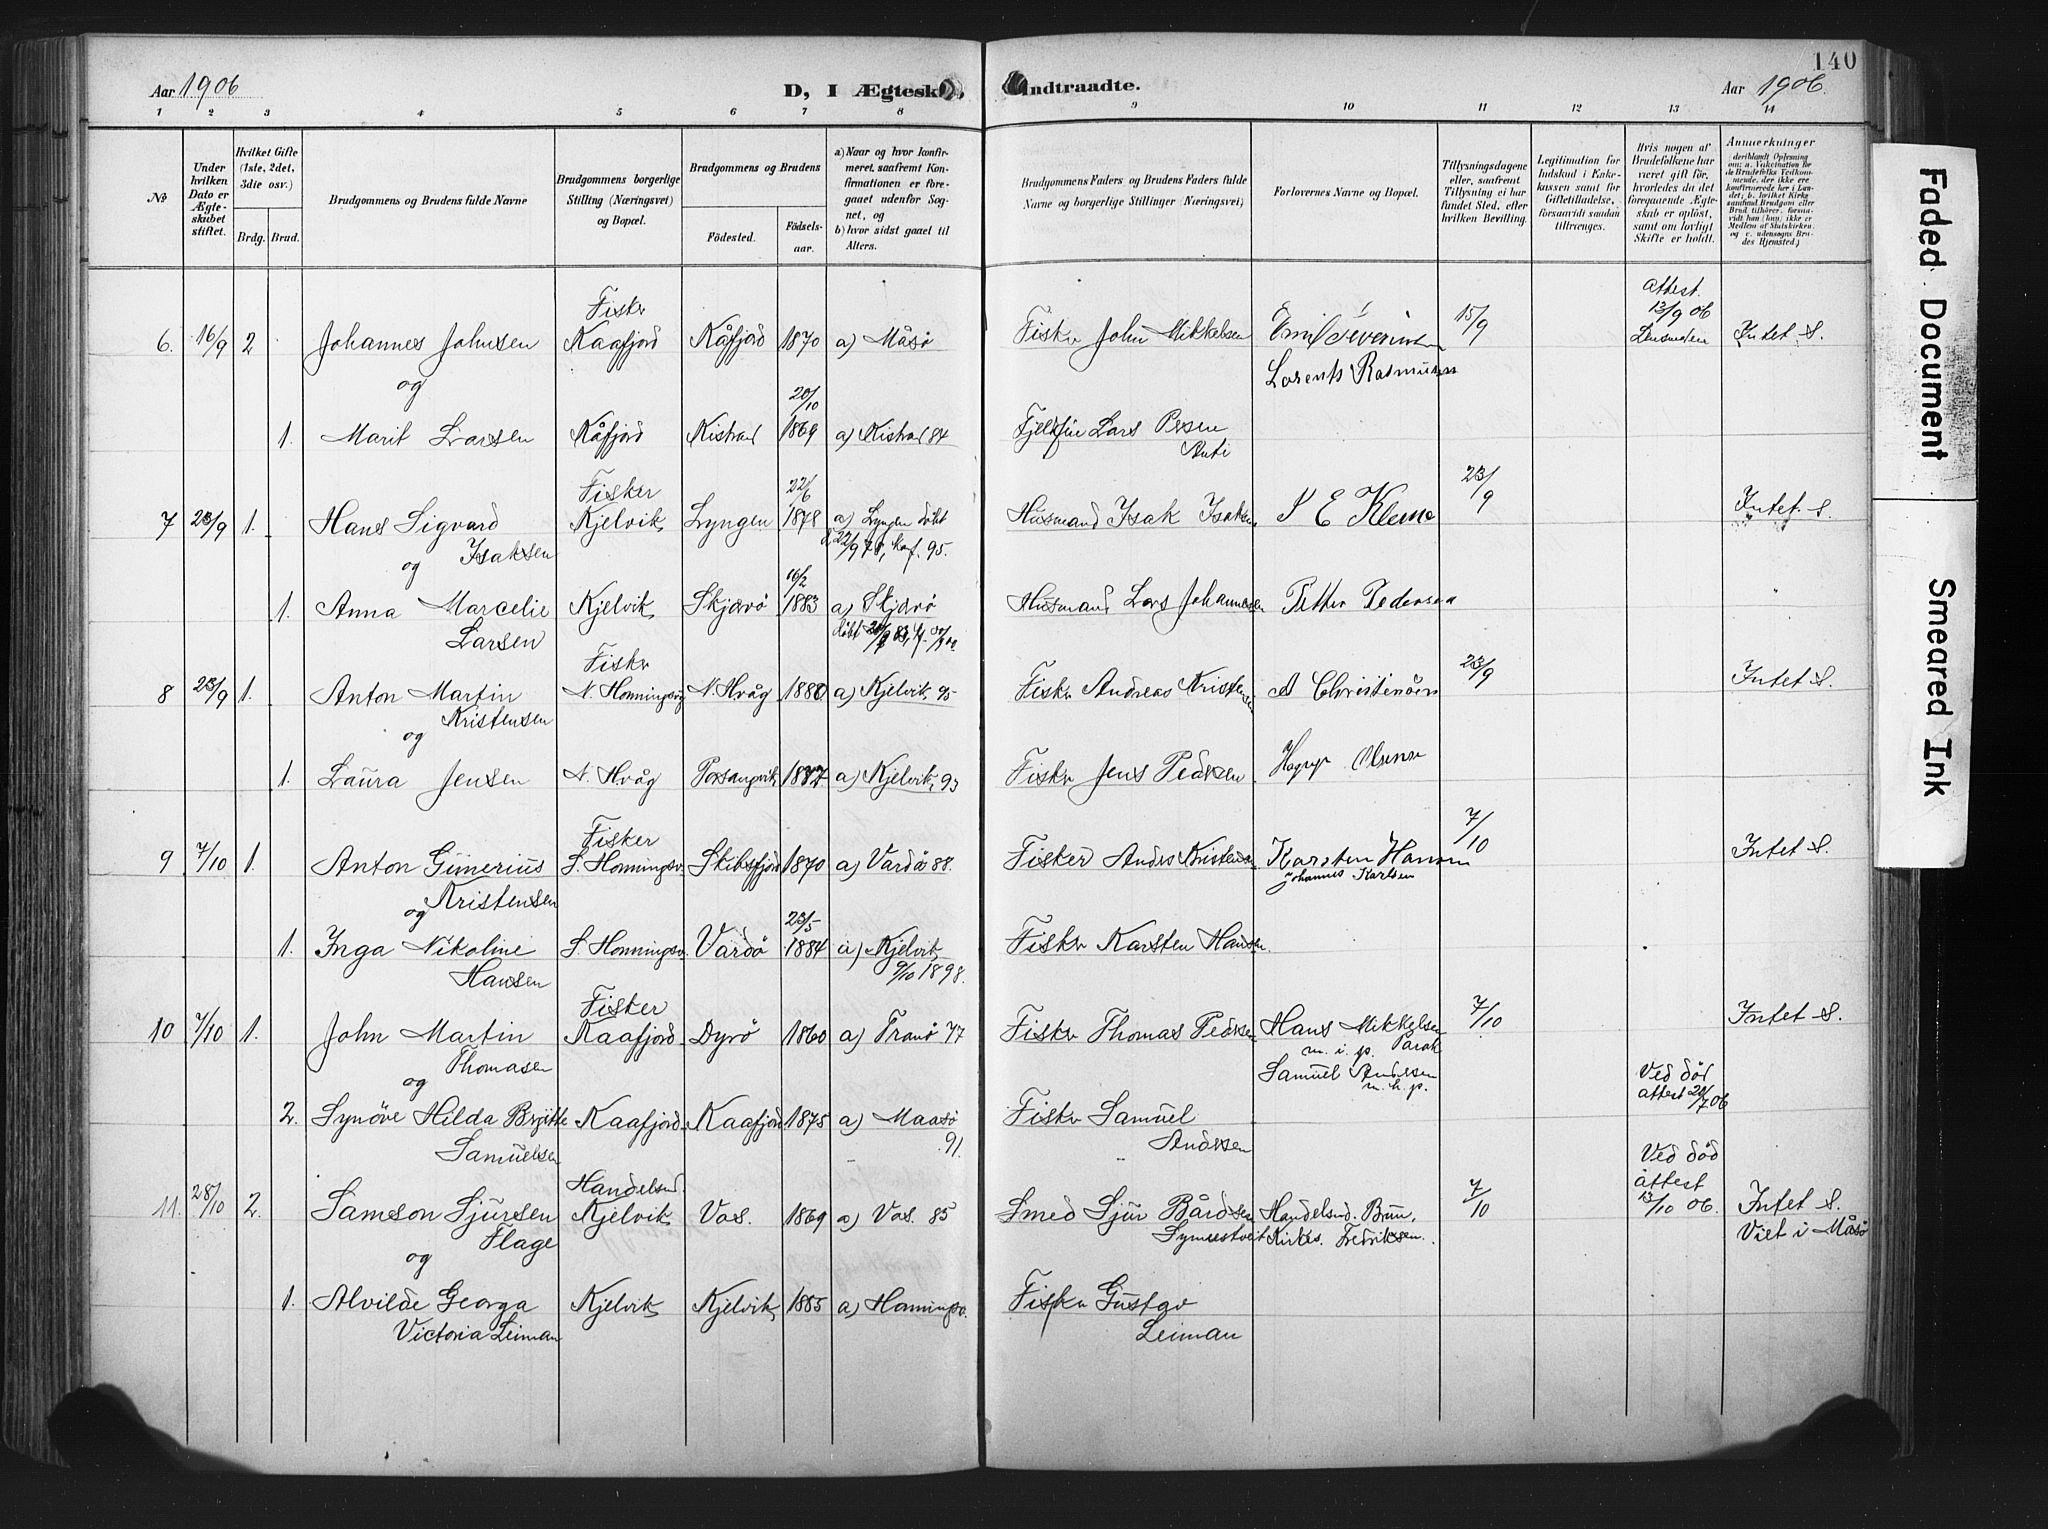 140
Aar 1906
D, I Ægtesk
Indtraadte.
Aar 1906.
1 2 3 4 5 6 7 8 9 10 11 12 13 14
№
Under hvilken Dato er Ægteskabet stiftet.
Hvilket Gifte (1ste, 2det, 3die osv.)
Brdg. Brud.
Brudgommens og Brudens fulde Navne
Brudgommens borgerlige Stilling (Næringsvei) og Bopæl.
Brudgommens og Brudens
Fødested. Fødselsaar.
a) Naar og hvor konfirmeret, saafremt Konfirmationen er foregaaet udenfor Sognet, og
b) hvor sidst gaaet til Alters.
Brudgommens Faders og Brudens Faders fulde Navne og borgerlige Stillinger (Næringsvei)
Forlovernes Navne og Bopæl.
Tillysningsdagene eller, saafremt Tillysning ei har fundet Sted, efter hvilken Bevilling.
Legitimation for Indskud i Enkekassen samt for Giftetilladelse, forsaavidt saadan tiltrænges.
Hvis nogen af Brudefolkene har været gift før, hvorledes da det foregaaende Ægteskab er opløst, samt om lovligt Skifte er holdt.
Anmærkninger
(deriblandt Oplysning om: a. Vaccination for de Brudefolks Vedkommende, der ikke ere konfirmerede her i Landet, b. hvilket Kirkesamfund Brudgom eller Brud tilhører, forsaavidt han (hun) ikke er Medlem af Statskirken, og c. udensogns Brudes Hjemsted.)
Fisker
attest
13/9 06
6. 16/9 2 Johannes Johnsen Kaafjord Kåfjord 1870 a) Måsø Fisker John Mikkelsen Emil Severinsen 15/9 Intet S.
og
Lorents Rasmussen
20/10
1. Marit Larsen Kåfjord Kistrand 1869 a) Kistrand 84 Fjelfin Lars Persen
Anti
Fisker 22/6 23/9
7 23/9 1. Hans Sigvard Kjelvik Lyngen 1878 a) Lyngen døbt Husmand Isak Isaksen Klemo Intet S.
og Isaksen 22/9 78, kof. 95.
16/2
1. Anna Marcelie Kjelvik Skjærvø 1883 a) Skjærvø Husmand Lars Johannesen Petter Pedersen
Larsen døbt
Fisker 23/9
8 23/9 1. Anton Martin N. Honningsvåg N. Hvåg 1880 a) Kjelvik 95 Fisker Andreas Kristensen A Christensen Intet S.
Kristensen
og
1. Laura Jensen N. Hvåg Porsangvik 1877 a) Kjelvik, 93 Fisker Jens Pedersen
Fisker 7/10
9 7/10 1. Anton Gunerius S. Honningsv. Skibsfjord 1870 a) Vardø 88. Fisker Anders Kristensen Karsten Hansen Intet S.
og Kristensen
Johannes Karlsen
23/5
1. Inga Nikoline S. Honningsv. Vardø 1884 a) Kjelvik Fisker Karsten Hansen.
Hansen 9/10 1898.
Fisker 7/10
10 7/10 1. John Martin Kaafjord Dyrø 1860 a) Tranø 77 Fisker Thomas Pedersen Hans Mikkelsen Intet S.
Thomasen m. i. p. Parak
og
Samuel Andersen
m. h. p.
Ved død
attest 20/7 06
2. Synøve Hilda Brgitte Kaafjord Kaafjord 1875 a) Maasø Fisker Samuel
Samuelsen 91. Andersen
Ved død
attest
13/10 06.
Handelsmd.
11. 28/10 2. Samson Sjursen Kjelvik Vos. 1869 a) Vos. 85 Smed Sjur Bårdsen Handelsmd. Brun. 7/10 Intet S.
Flage Kirkes. Fredriksen. Viet i Måsø
og
1. Alvilde Georga Kjelvik Kjelvik 1885 a) Honningsv. Fisker Gustav
Victoria Leiman Leiman
Faded Document
Smeared Ink